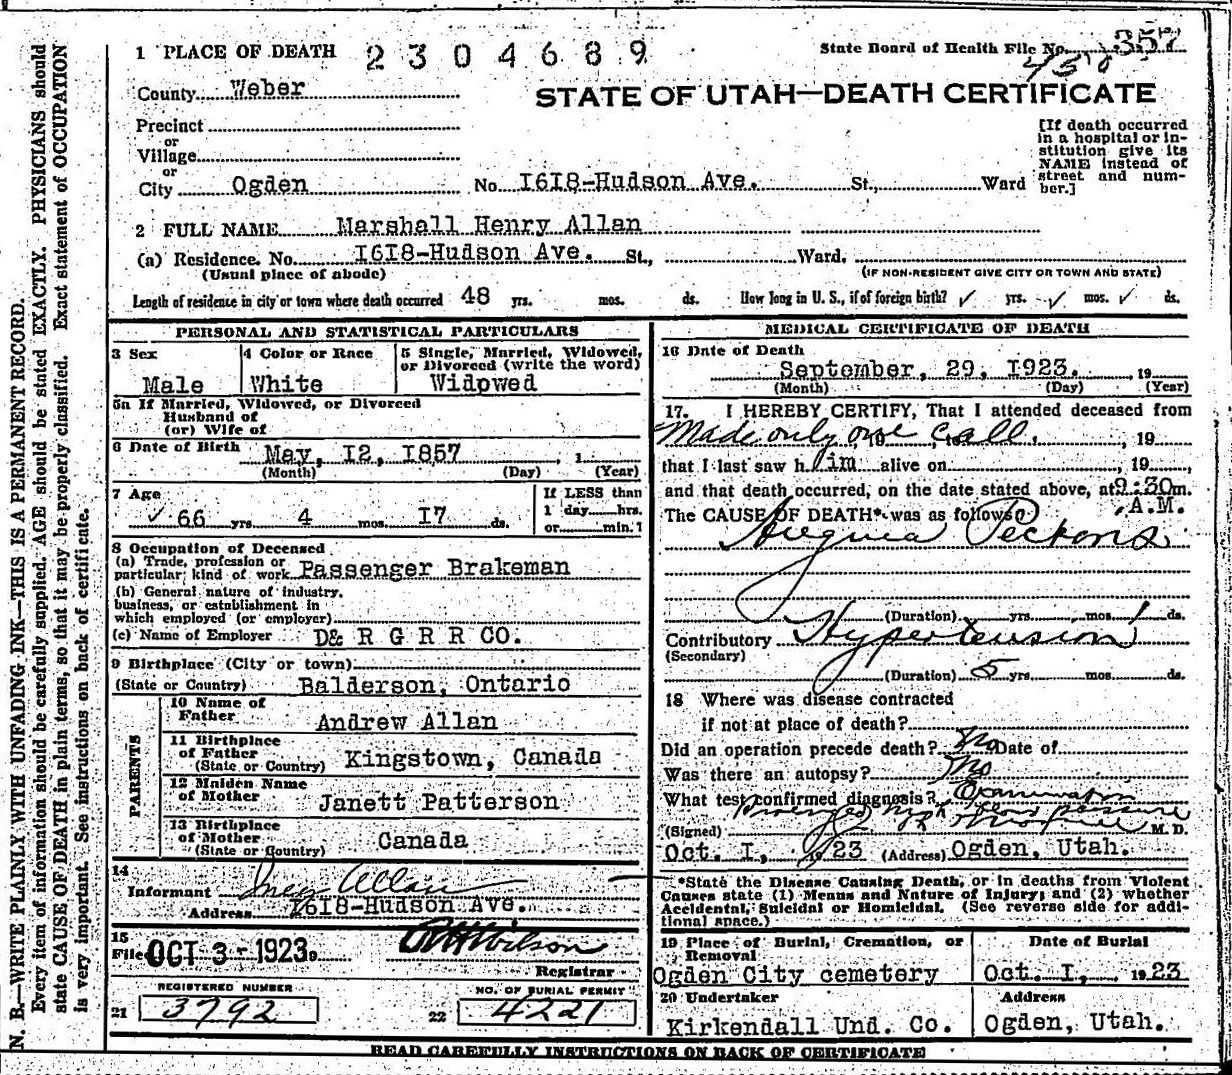 1 PLACE OF DEATH 2304689 State Board of Health File No. 357
County Weber STATE OF UTAH—DEATH CERTIFICATE
Precinct
or
Village
or
City Ogden No 1618-Hudson Ave. St., Ward
[If death occurred
in a hospital or in-
stitution give its
NAME instead of
street and num-
ber.]
2 FULL NAME Marshall Henry Allan
(a) Residence. No. 1618-Hudson Ave. St., Ward.
(Usual place of abode) (IF NON-RESIDENT GIVE CITY OR TOWN AND STATE)
Length of residence in city or town where death occurred 48 yrs. mos. ds. How long in U. S., if of foreign birth? ✓ yrs. ✓ mos. ✓ ds.
PERSONAL AND STATISTICAL PARTICULARS
3 Sex 4 Color or Race 5 Single, Married, Widowed,
or Divorced (write the word)
Male White Widowed
5a If Married, Widowed, or Divorced
Husband of
(or) Wife of
6 Date of Birth May, 12, 1857 , 1
(Month) (Day) (Year)
7 Age If LESS than
1 day hrs.
✓ 66 yrs 4 mos. 17 ds. or min. 1
8 Occupation of Deceased
(a) Trade, profession or
particular kind of work Passenger Brakeman
(b) General nature of industry.
business, or establishment in
which employed (or employer)
(c) Name of Employer D& R G R R CO.
9 Birthplace (City or town)
(State or Country) Balderson, Ontario
PARENTS
10 Name of
Father Andrew Allan
11 Birthplace
of Father Kingstown, Canada
(State or Country)
12 Maiden Name
of Mother Janett Patterson
13 Birthplace
of Mother Canada
(State or Country)
14
Informant Allan
Address 1618-Hudson Ave.
15
File OCT 3 - 1923 Wilson
Registrar
REGISTERED NUMBER NO. OF BURIAL PERMIT
21 3792 22 4221
MEDICAL CERTIFICATE OF DEATH
16 Date of Death
September, 29, 1923. 19
(Month) (Day) (Year)
17. I HEREBY CERTIFY, That I attended deceased from
Made only one call. , 19
that I last saw h im alive on , 19 ,
and that death occurred, on the date stated above, at 9:30 m.
The CAUSE OF DEATH* was as follows: A.M.
Angina Pectoris
(Duration) yrs. mos. 1 ds.
Contributory Hypertension
(Secondary)
(Duration) 5 yrs. mos. ds.
18 Where was disease contracted
if not at place of death?
Did an operation precede death? No Date of
Was there an autopsy? No
What test confirmed diagnosis? Examination
blood pressure
(Signed) M. D.
Oct. 1, 19 23 (Address) Ogden, Utah.
*State the Disease Causing Death, or in deaths from Violent
Causes state (1) Means and Nature of Injury; and (2) whether
Accidental, Suicidal or Homicidal. (See reverse side for addi-
tional space.)
19 Place of Burial, Cremation, or Date of Burial
Removal
Ogden City cemetery Oct. 1, 19 23
20 Undertaker Address
Kirkendall Und. Co. Ogden, Utah.
READ CAREFULLY INSTRUCTIONS ON BACK OF CERTIFICATE
N. B.—WRITE PLAINLY WITH UNFADING INK—THIS IS A PERMANENT RECORD.
Every item of information should be carefully supplied. AGE should be stated EXACTLY. PHYSICIANS should
state CAUSE OF DEATH in plain terms, so that it may be properly classified. Exact statement of OCCUPATION
is very important. See instructions on back of certificate.